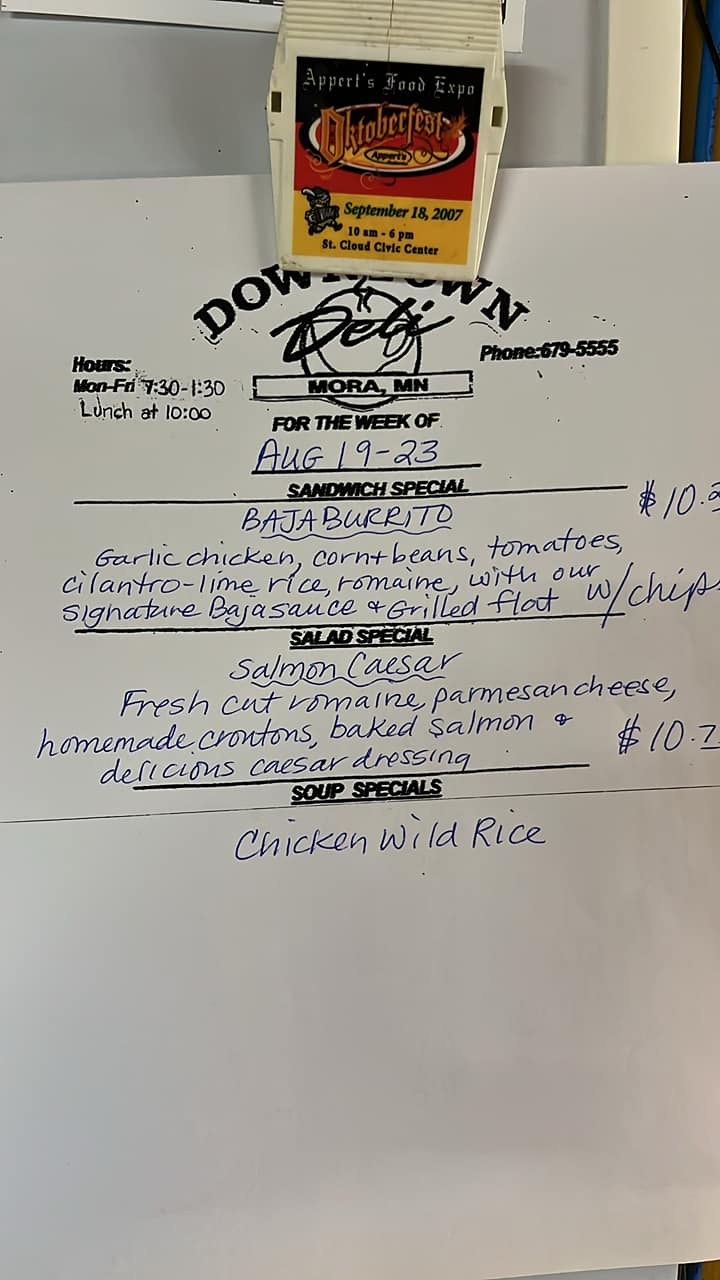 Appert's Food Expo
Oktoberfest
Appert's
September 18, 2007
10 am - 6 pm
St. Cloud Civic Center
DOWNTOWN
Deli
Hours:
Mon-Fri 7:30-1:30
Lunch at 10:00
Phone:679-5555
MORA, MN
FOR THE WEEK OF
AUG 19-23
SANDWICH SPECIAL
BAJA BURRITO
$10.
Garlic chicken, corn + beans, tomatoes,
cilantro-lime rice, romaine, with our
signature Baja sauce & Grilled flat w/chips
SALAD SPECIAL
Salmon Caesar
Fresh cut romaine, parmesan cheese,
homemade croutons, baked salmon &
delicious caesar dressing
$10.7
SOUP SPECIALS
Chicken Wild Rice